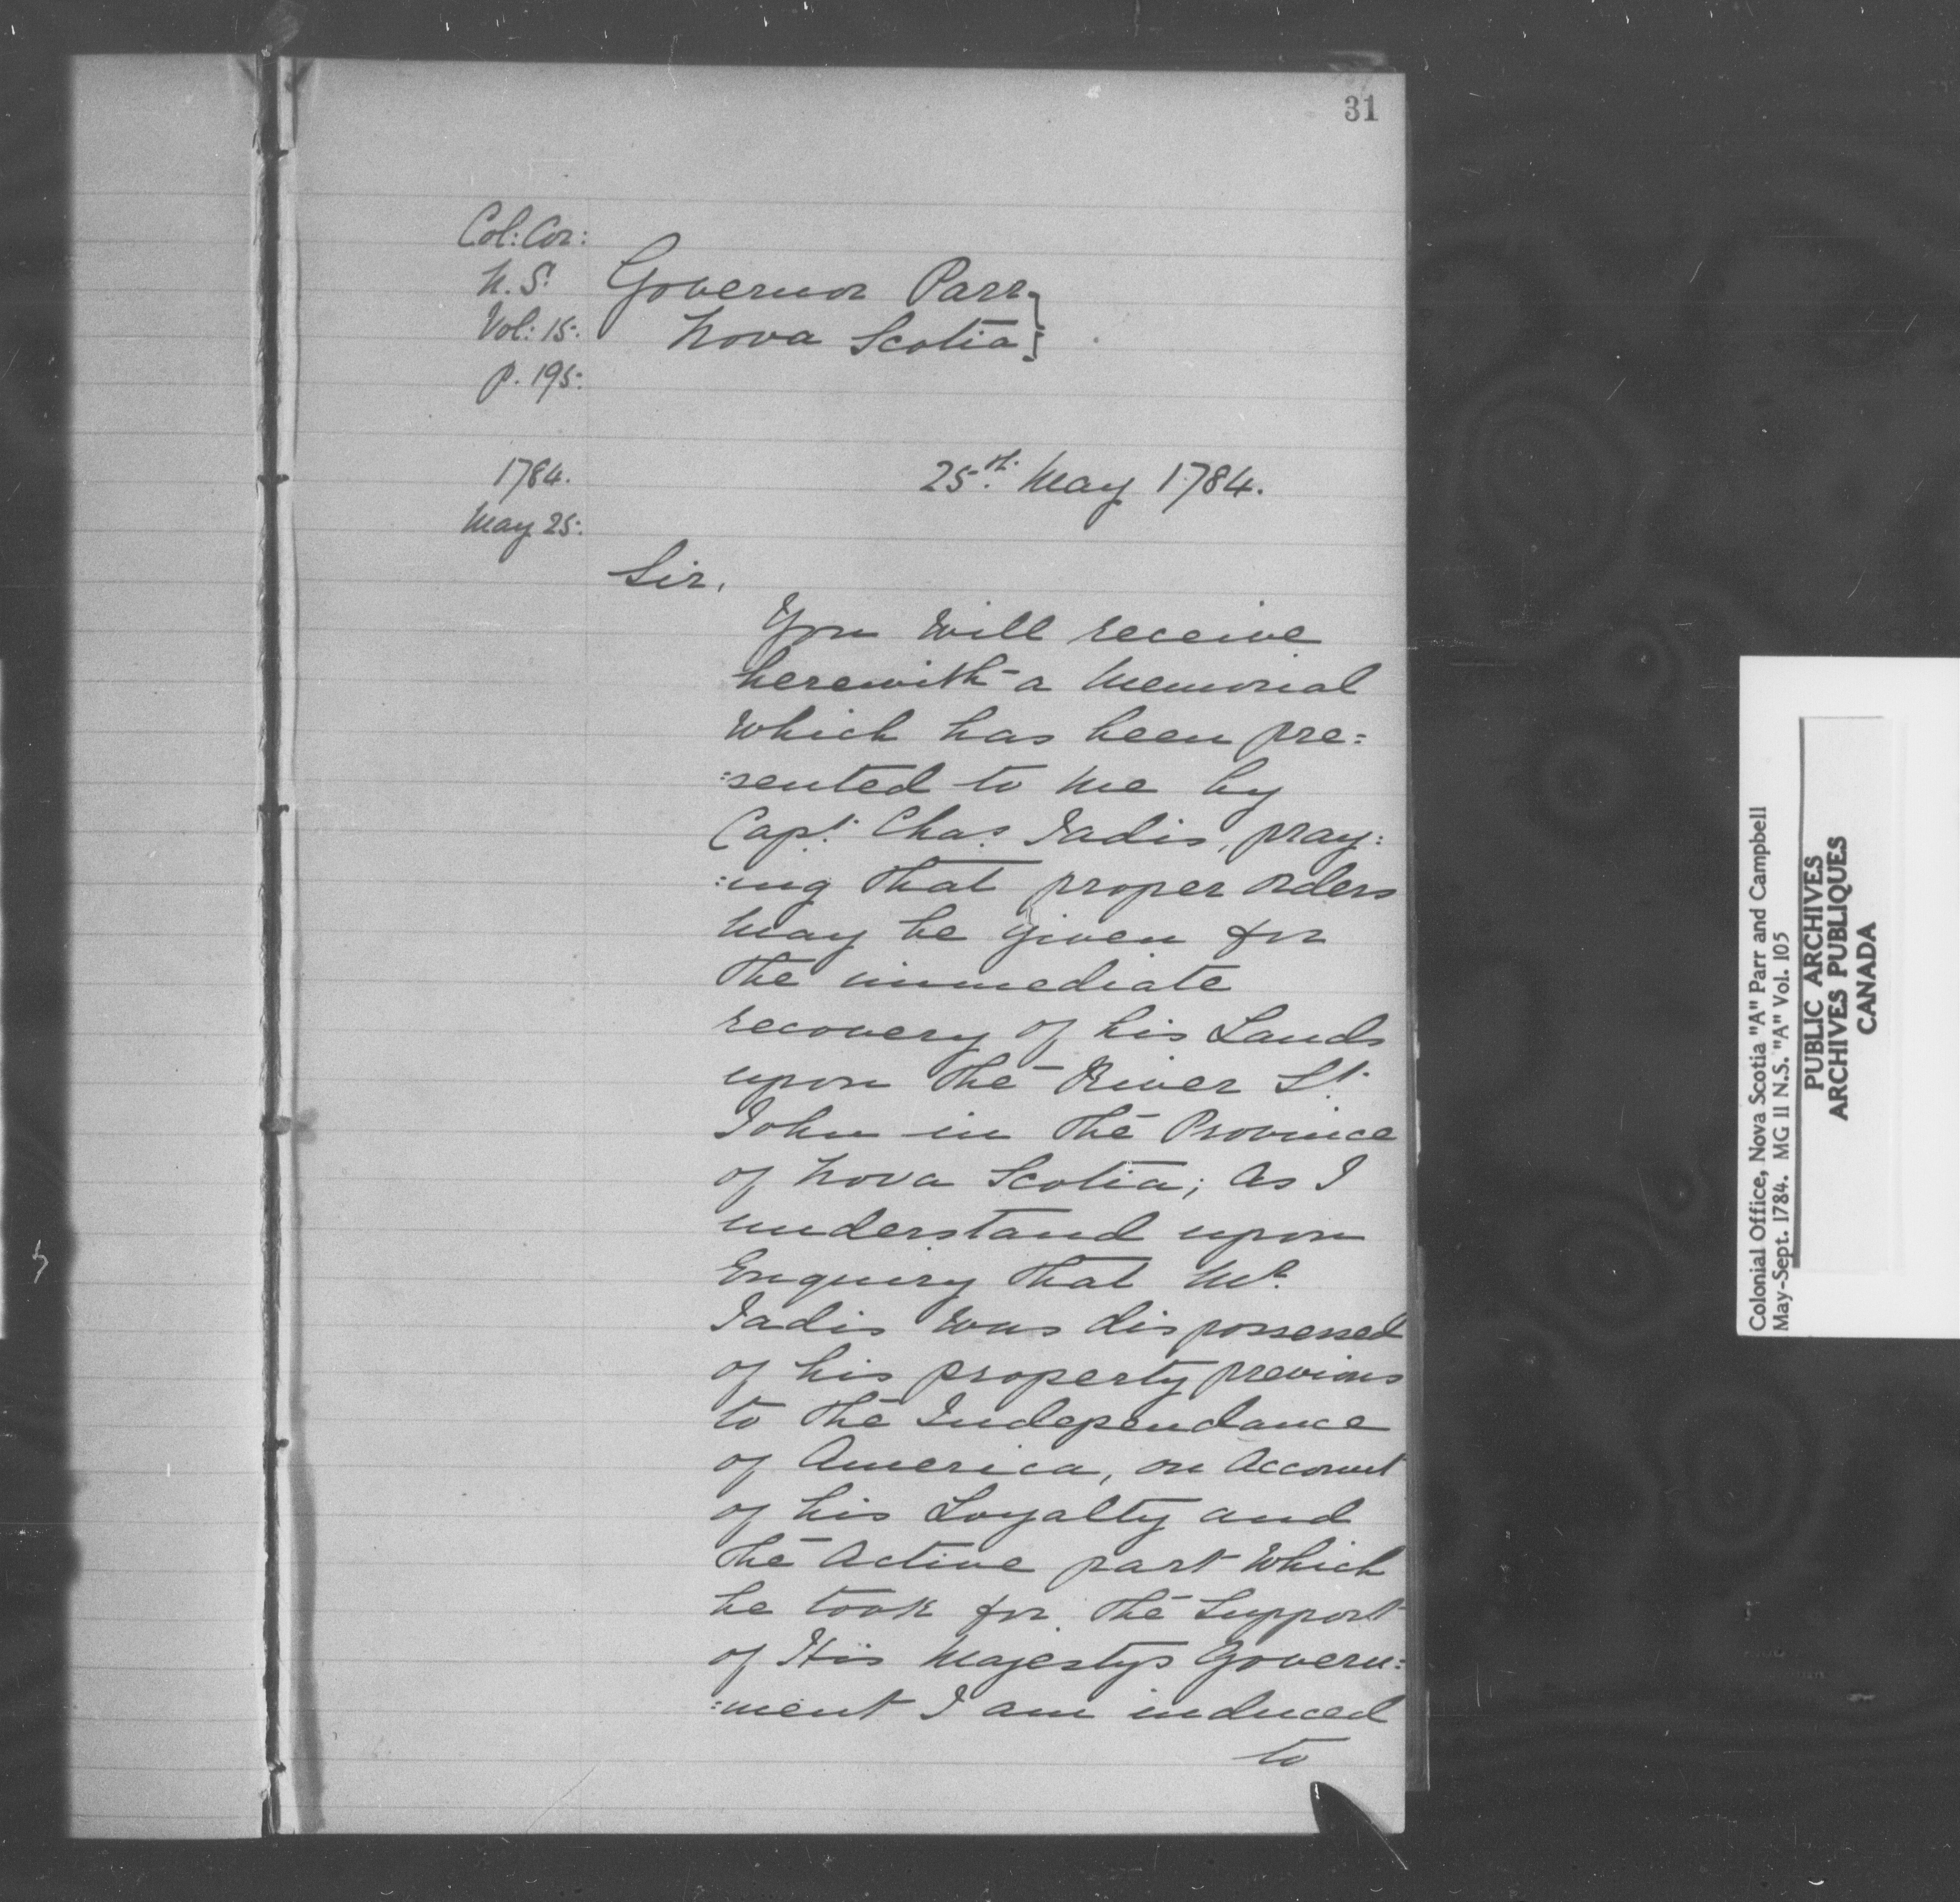 31
Col: Cor:
N.S.
Vol: 15.
p. 195.
Governor Parr
Nova Scotia
1784.
May 25.
25th May 1784.
Sir,
You will receive
herewith a Memorial
which has been pre=
=sented to me by
Capt. Chas. Jadis, pray:
:ing that proper orders
may be given for
the immediate
recovery of his Lands
upon the River St.
John in the Province
of Nova Scotia; as I
understand upon
Enquiry that Mr.
Jadis was dispossessed
of his property previous
to the Independance
of America, on Account
of his Loyalty and
the Active part which
he took for the Support
of His Majestys Govern:
:ment I am induced
to
Colonial Office, Nova Scotia "A" Parr and Campbell
May-Sept. 1784. MG 11 N.S. "A" Vol. 105
PUBLIC ARCHIVES
ARCHIVES PUBLIQUES
CANADA